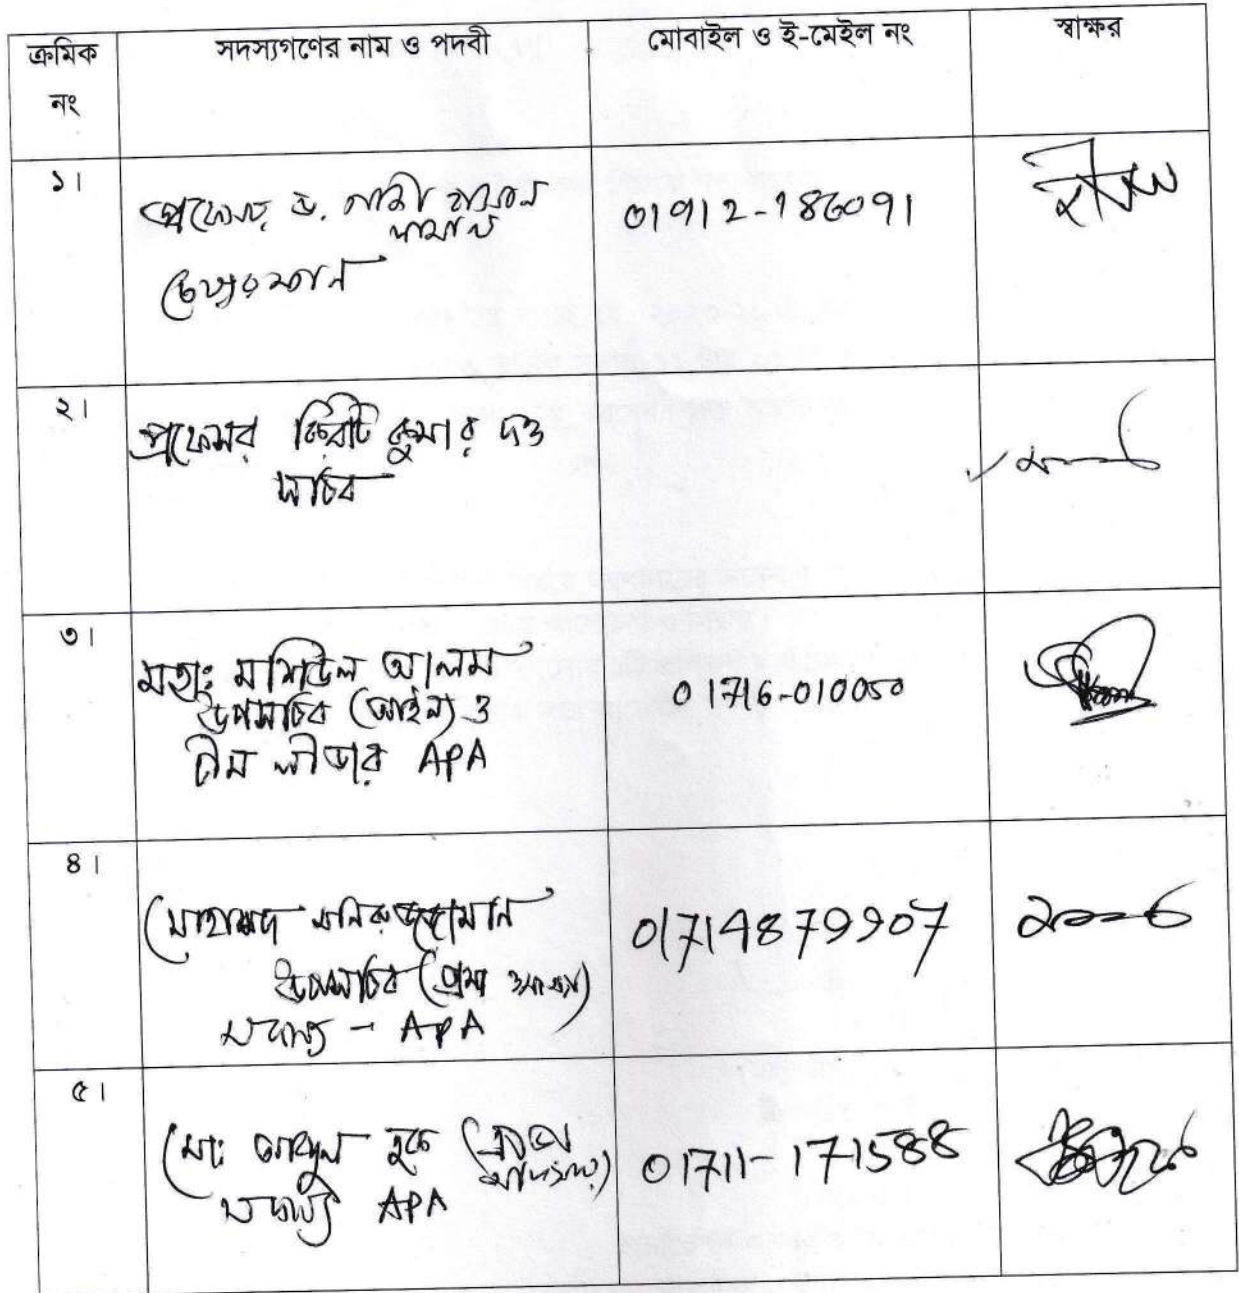 ক্রমিক নং
সদস্যগণের নাম ও পদবী
মোবাইল ও ই-মেইল নং
স্বাক্ষর
১।
প্রফেসর ড. গাজী হাসান
কামাল
চেয়ারম্যান
01912-186091
২।
প্রফেসর কিরীট কুমার দত্ত
সচিব
৩।
মহাঃ মশিউল আলম
উপসচিব (আইন) ও
টীম লীডার APA
01716-010050
৪।
মোহাম্মদ মনিরুজ্জামান
উপসচিব
সদস্য - APA
01714879907
৫।
মোঃ আব্দুল হক
সদস্য APA
01711-171588